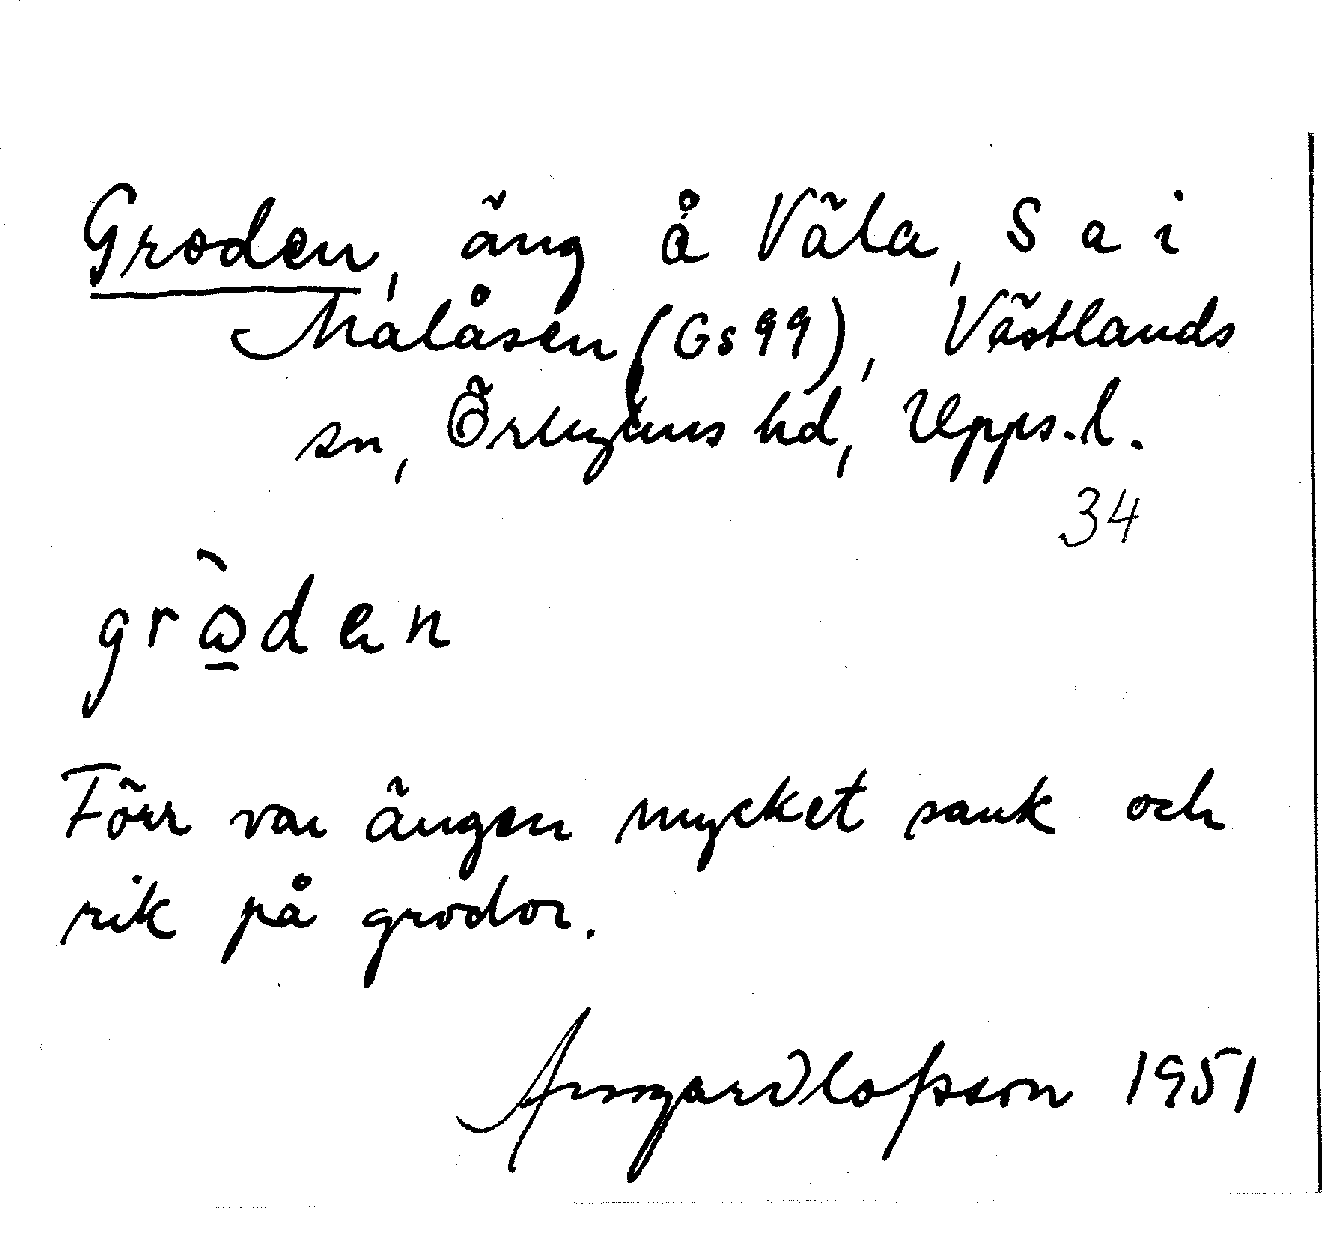 Groden, äng å Väla, S a i
Malåsen (Gs 99), Västlands
sn, Örbyhus hd, Upps. l.
34
grὼ̱dɘn
Förr var ängen mycket sank och
rik på grodor.
Ansgar Olofsson 1951